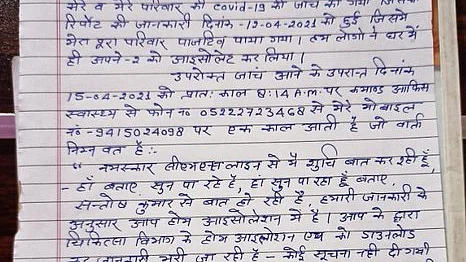 मेरे व मेरे परिवार की covid-19 की जांच की गयी जिसकी
रिपोर्ट की जानकारी दिनांक -12-04-2021 को हुई जिसमें
मेरा पूरा परिवार पाजटिव पाया गया। हम लोगो ने घर में
ही अपने-2 को आइसोलेट कर लिया।
उपरोक्त जांच आने के उपरान्त दिनांक
15-04-2021 को प्रातः काल 8:14 A.m. पर कमाण्ड आफिस
स्वास्थ्य से फोन न० 05222723468 से मेरे मोबाइल
न० -9415024098 पर एक काल आती है जो वार्ता
निम्न वत है:-
“ नमस्कार सीएमएस लाइन से मै शुचि बात कर रही हूँ,
- हाँ बताए, सुन पा रहे है, हां सुन पा रहा हूँ बताए,
सन्तोष कुमार से बात हो रही है, हमारी जानकारी के
अनुसार आप होम आइसोलेशन में है। आप के द्वारा
चिकित्सा विभाग के होम आइसोलेशन एप्प को डाउनलोड
कर जानकारी भरी जा रही है - कोई सूचना नही दी गयी